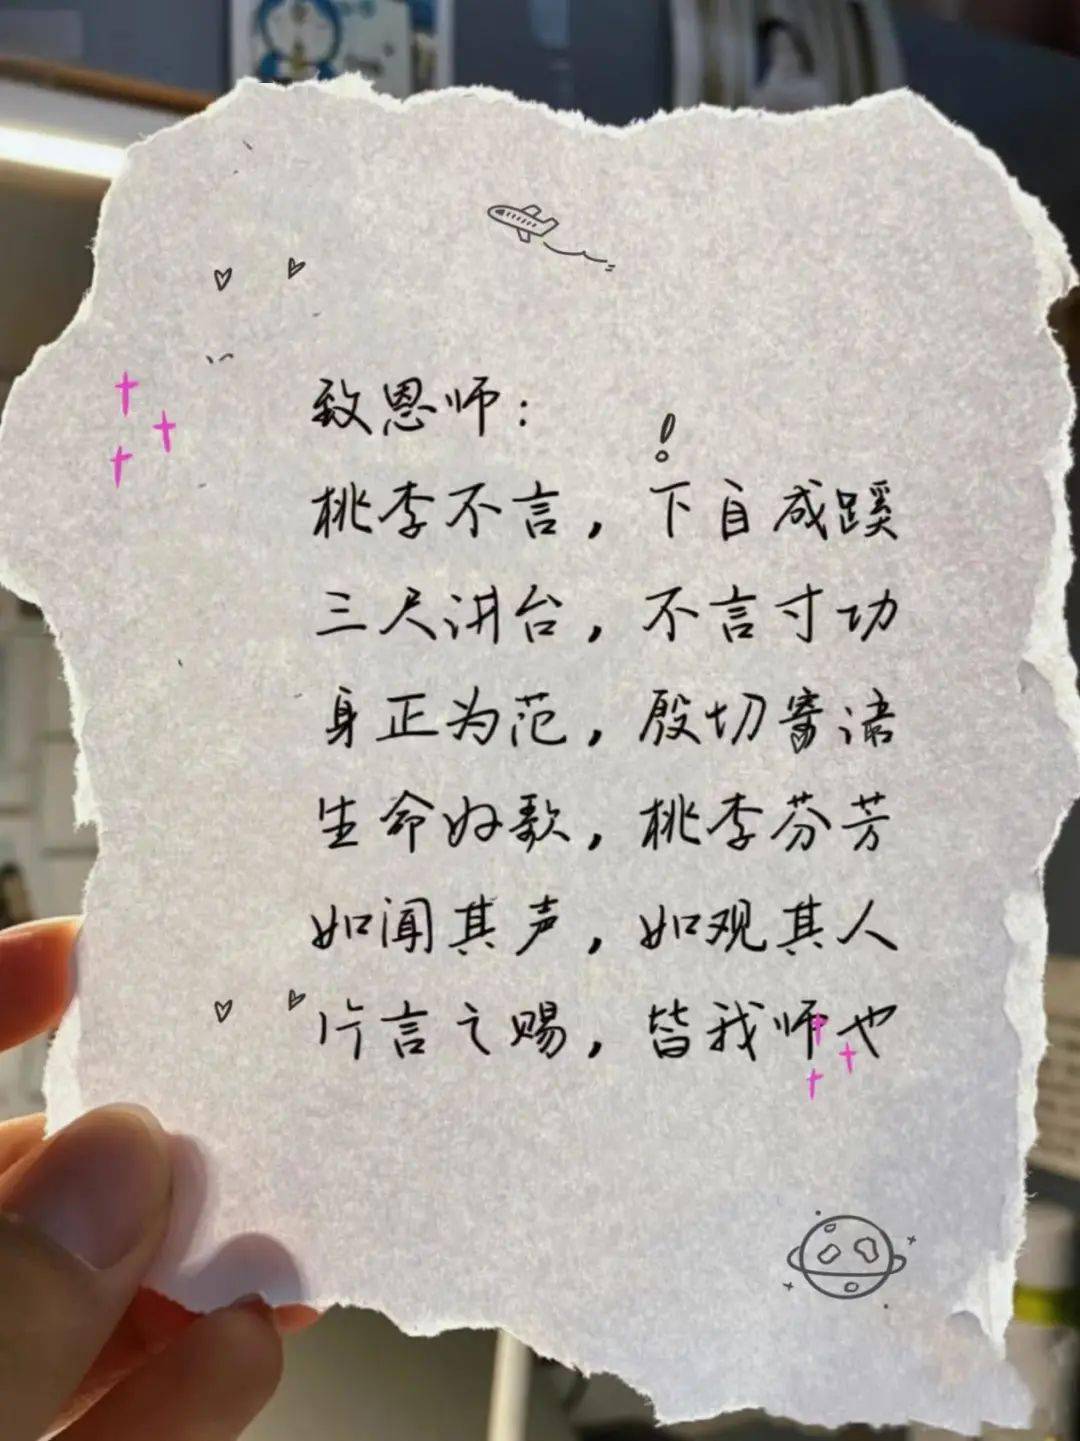 致恩师：
桃李不言，下自成蹊
三尺讲台，不言寸功
身正为范，殷切寄语
生命如歌，桃李芬芳
如闻其声，如观其人
片言之赐，皆我师也